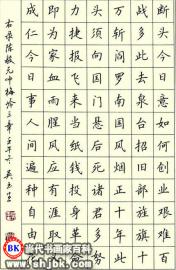 断头今日意如何创业艰难百
战多此去泉台招旧部旌旗十
万斩阎罗南国烽烟正十年此
头须向国门悬后死诸君多努
力捷报飞来当纸钱投身革命
即为家血雨腥风应有涯取义
成仁今日事人间遍种自由花
右录陈毅元帅梅岭三章壬午 吴玉生
当代书画家百科